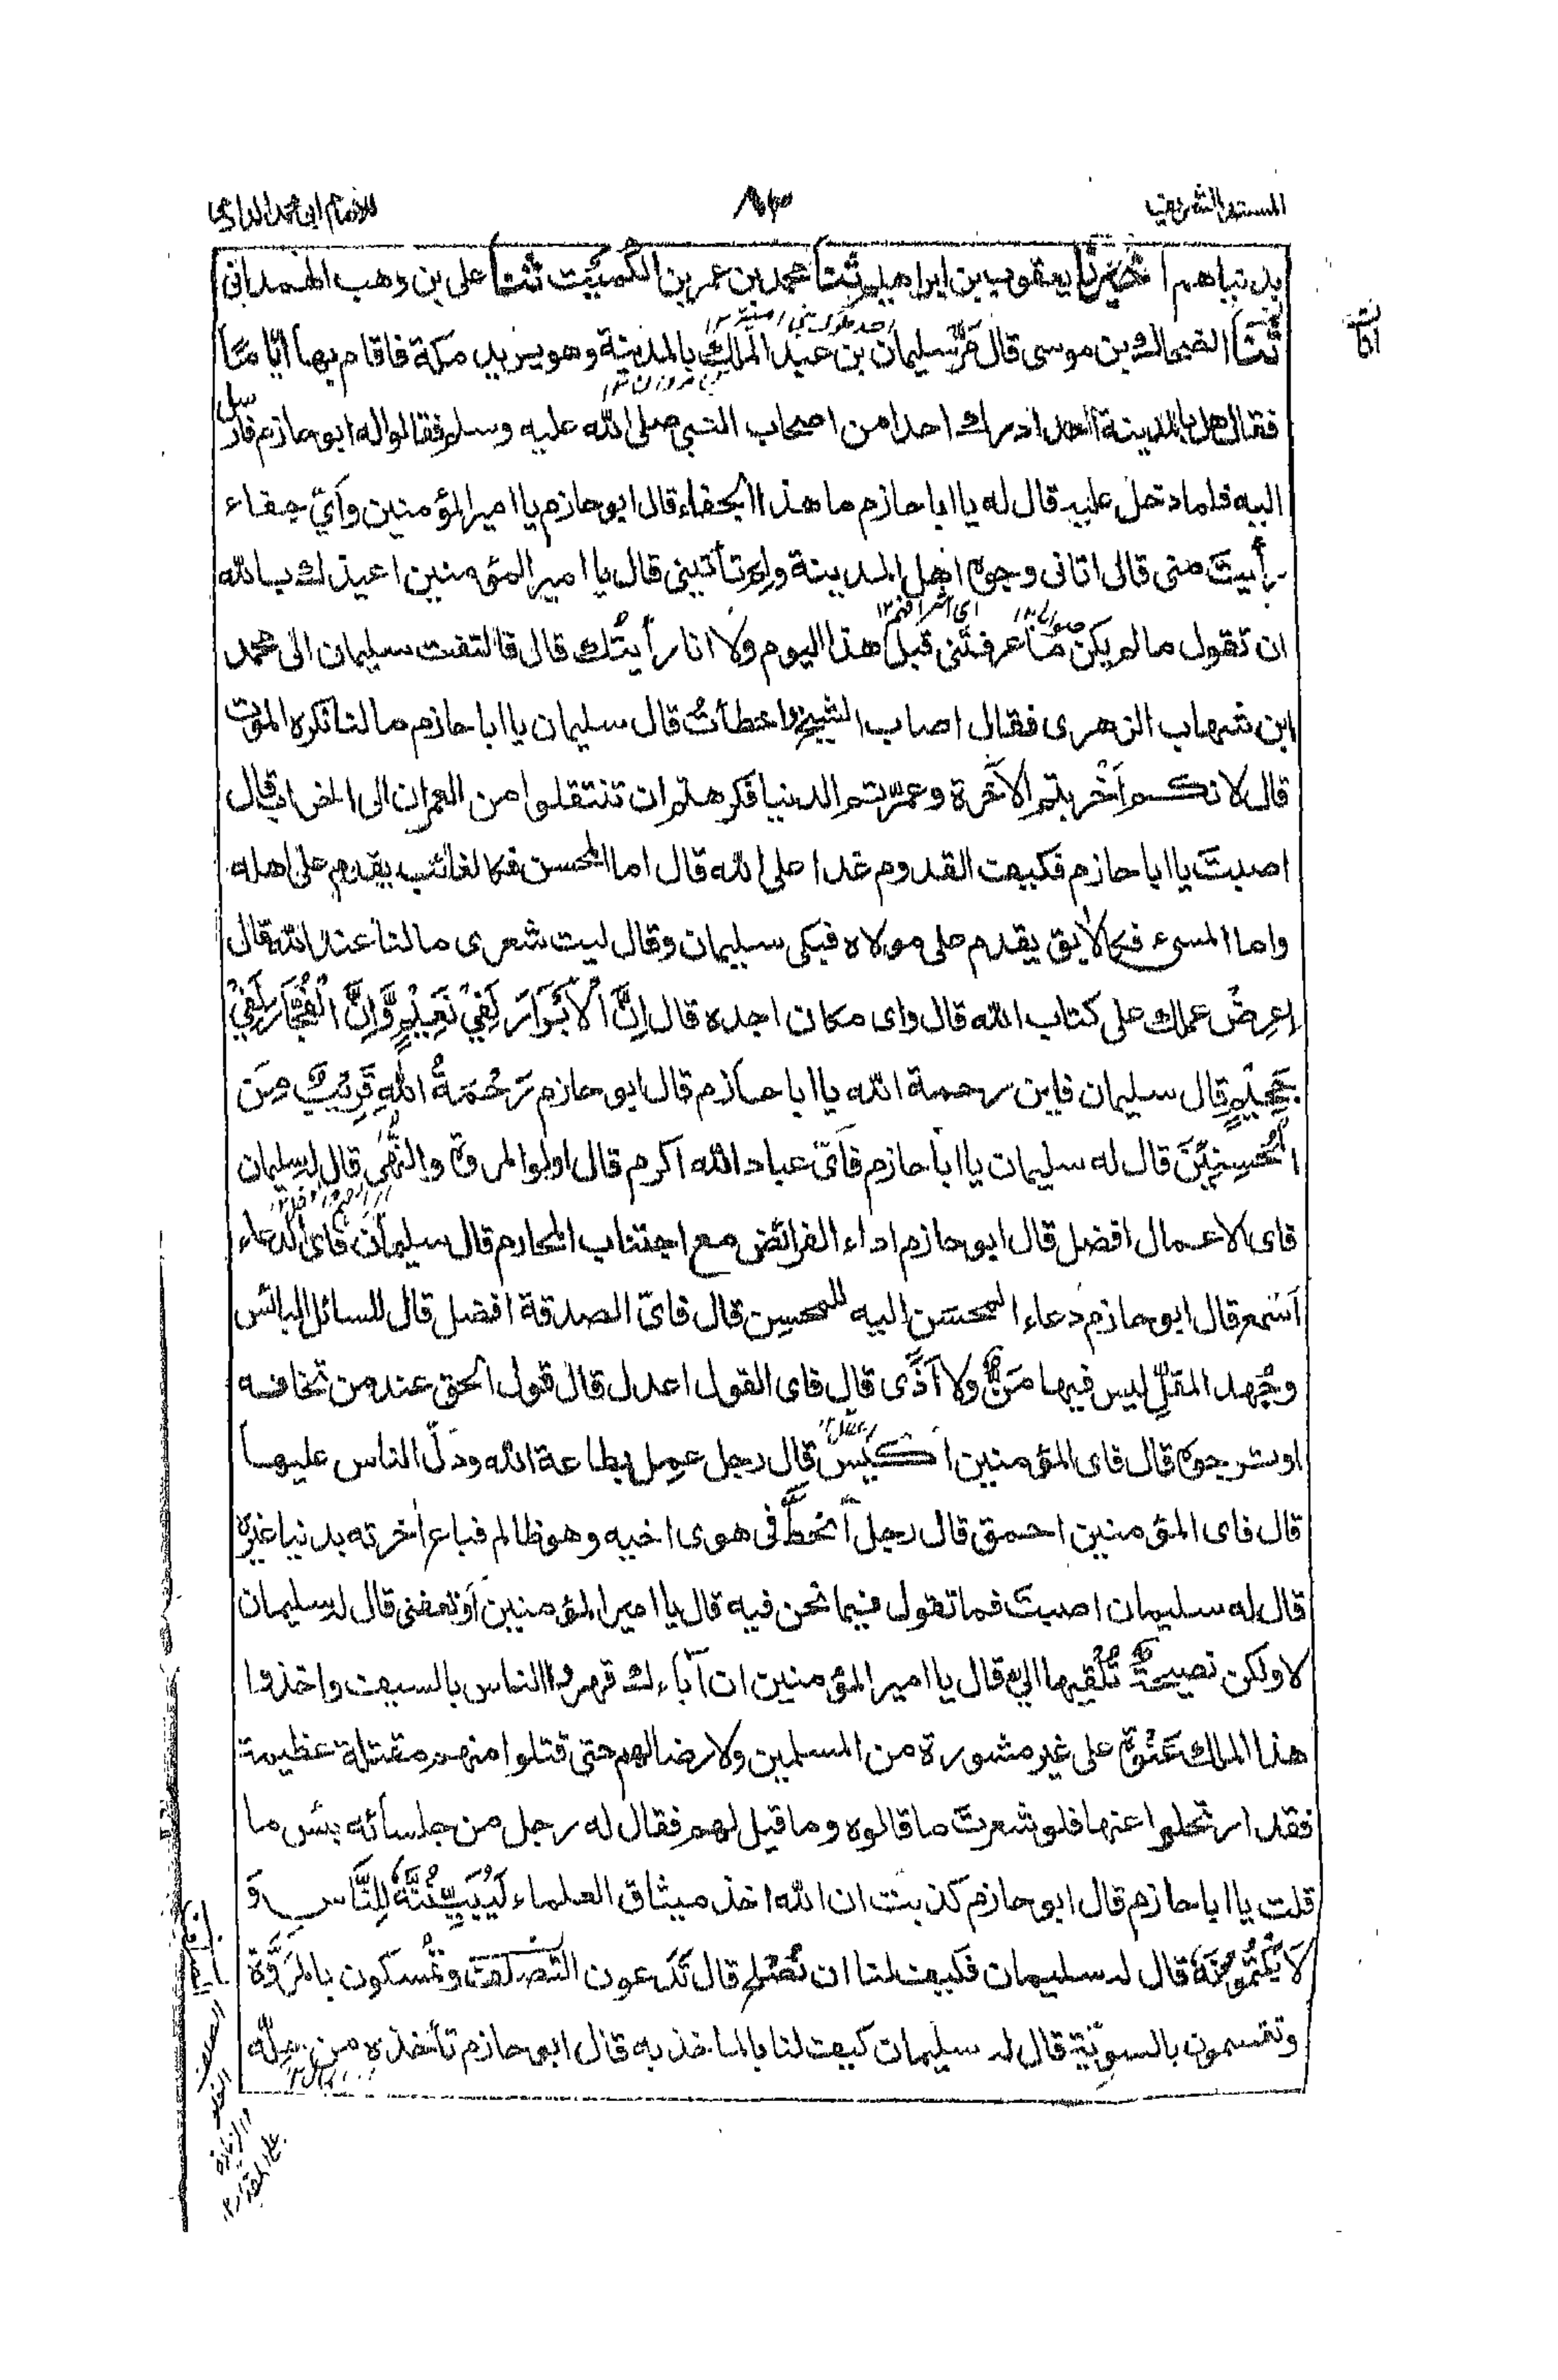 المسند الشريف
للامام ابى محمد الدارمى
بدنياهم اخبرنا يعقوب بن ابراهيم ثنا محمد بن عمر بن الكُمَيْت ثنا على بن وهب الهمدانى
ثنا الضحاك بن موسى قال مَرَّ سليمان بن عبد الملك بالمدينة وهو يريد مكة فاقام بها ايّامًا
فقال هل بالمدينة احد ادرك احدا من اصحاب النبى صلى الله عليه وسلم فقالوا له ابو حازم فارسل
اليه فلما دخل عليه قال له يا ابا حازم ما هذا الجفاء قال ابو حازم يا امير المؤمنين وَاَيّ جفاء
رأيتَ منى قال اتانى وجوه اهل المدينة ولم تأتينى قال يا امير المؤمنين اعيذك بالله
اى اشرافهم ١٢
ان تقول ما لم يكن ما عرفتَنى قبل هذا اليوم ولا انا رأيتُك قال فالتفت سليمان الى محمد
ابن شهاب الزهرى فقال اصاب الشيخ واخطأتُ قال سليمان يا ابا حازم ما لنا نكره الموت
قال لانكم اَخْرَبتم الآخرة وعمّرتم الدنيا فكرهتم ان تنتقلوا من العمران الى الخراب قال
اصبتَ يا ابا حازم فكيف القدوم غدا على الله قال اما المحسن فكالغائب يقدم على اهله
واما المسىء فكالآبق يقدم على مولاه فبكى سليمان وقال ليت شعرى ما لنا عند الله قال
اِعرِضْ عملك على كتاب الله قال واى مكان اجده قال اِنَّ الْاَبْرَارَ لَفِيْ نَعِيْمٍ وَّاِنَّ الْفُجَّارَ لَفِيْ
جَحِيْمٍ قال سليمان فاين رحمة الله يا ابا حازم قال ابو حازم رَحْمَةُ اللهِ قَرِيْبٌ مِنَ
الْمُحْسِنِيْنَ قال له سليمان يا ابا حازم فَاَىّ عباد الله اكرم قال اولوا المروة والنُّهٰى قال له سليمان
فاى الاعمال افضل قال ابو حازم اداء الفرائض مع اجتناب المحارم قال سليمان فاى الدعاء
اَسْمع قال ابو حازم دعاء المحسَن اليه للمحسِن قال فاىّ الصدقة افضل قال للسائل البائس
وجُهد المقلّ ليس فيها مَنٌّ ولا اَذًى قال فاى القول اعدل قال قول الحق عند من تخافه
او ترجوه قال فاى المؤمنين اكيَس قال رجل عمِل بطاعة الله ودَلّ الناس عليها
قال فاى المؤمنين احمق قال رجل اَنحطَّ فى هوى اخيه وهو ظالم فباع اٰخرته بدنيا غيره
قال له سليمان اصبتَ فما تقول فيما نحن فيه قال يا امير المؤمنين اَوَتعفنى قال له سليمان
لا ولكن نصيحةٌ تُلْقِيها الىّ قال يا امير المؤمنين ان آباءك قهروا الناس بالسيف واخذوا
هذا الملك عَنْوَة على غير مشورة من المسلمين ولا رضا لهم حتى قتلوا منهم مقتلة عظيمة
فقد ارتحلوا عنها فلو شعرتَ ما قالوه وما قيل لهم فقال له رجل من جلسائه بئس ما
قلت يا ابا حازم قال ابو حازم كذبت ان الله اخذ ميثاق العلماء لَيُبَيِّنُنَّهُ لِلنَّاسِ وَ
لَا يَكْتُمُونَهُ قال له سليمان فكيف لنا ان نُصْلح قال تَدَعون الصَّلَف وتُمسكون بالمرَوَّة
وتقسمون بالسويّة قال له سليمان كيف لنا بالماخذ به قال ابو حازم تأخذه من حِلّه